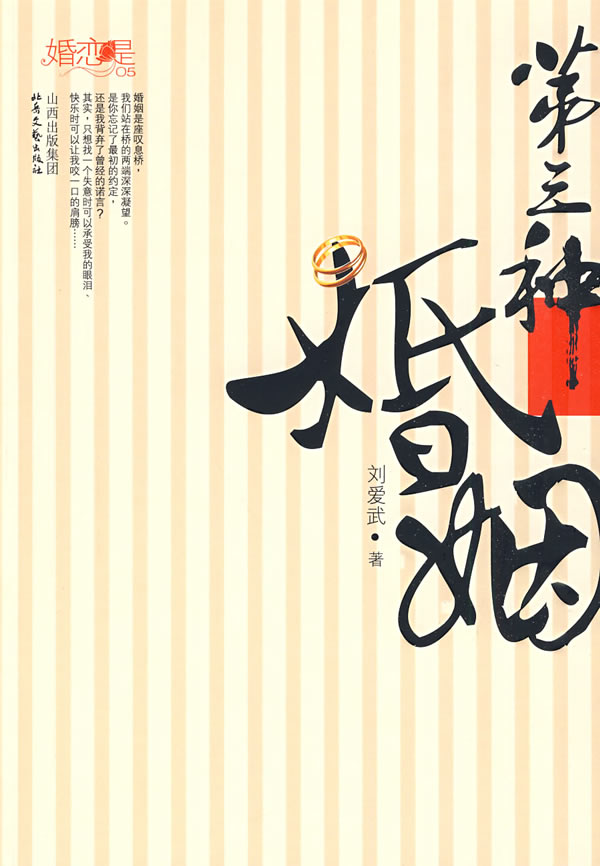 第三种
婚姻
刘爱武·著
婚恋是
05
婚姻是座叹息桥，
我们站在桥的两端深深凝望。
是你忘记了最初的约定，
还是我背弃了曾经的诺言？
其实，只想找一个失意时可以承受我的眼泪、
快乐时可以让我咬一口的肩膀……
山西出版集团
北岳文艺出版社